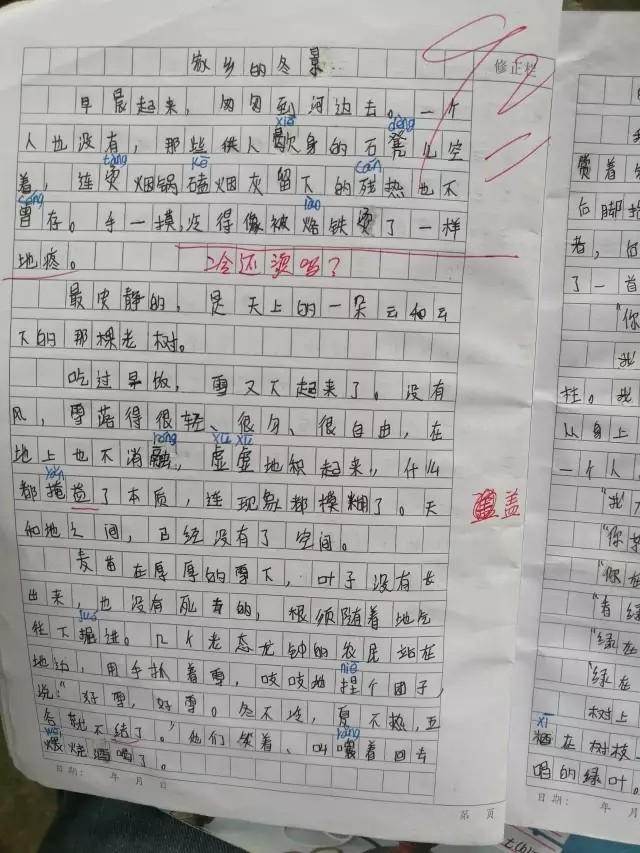 家乡的冬景
92
修正栏
早晨起来，匆匆到河边去。一个
xiē
dèng
人也没有，那些供人歇身的石凳儿空
tàng
kē
cán
着，连烫烟锅磕烟灰留下的残热也不
céng
lào
曾存。手一摸冷得像被烙铁烫了一样
地疼。
冷还烫吗了
最安静的，是天上的一朵云和云
下的那棵老树。
吃过早饭，雪又下起来了。没有
风，雪落得很轻、很匀、很自由，在
róng
xū xū
地上也不消融，虚虚地积起来，什么
yǎn
都掩盖了本质，连现象都模糊了。天
盖
和地之间，已经没有了空间。
麦苗在厚厚的雪下，叶子没有长
出来，也没有死去的，根须随着地气
jué
往下掘进。几个老态龙钟的农民站在
niē
地边，用手抓着雪，吱吱地捏个团子，
说："好雪，好雪。冬不冷，夏不热，五
谷就不结了。"他们笑着、叫嚷着回去
rǎng
wēi
煨烧酒喝了。
日期： 年 月 日
第 页
后脚
者，
了一首
"你
我
柱。我
从身上
一个人
"我
"你
"你在
"春绿
"绿在
"绿在
树上
xī
栖在树枝
唱的绿叶。
日期： 年 月